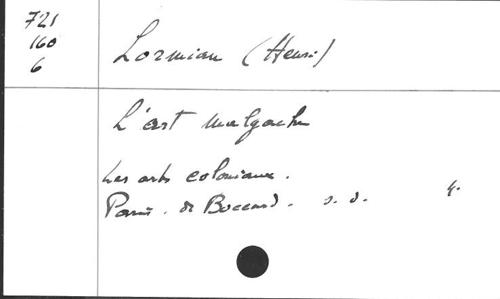 721
160
6
Lormian (Henri)
L'art malgache
Les arts coloniaux.
Paris. de Boccard. s. d. 4.